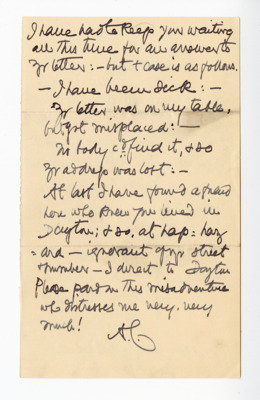 I have had to keep you waiting
all this time for an answer to
yr letter: - but + case is as follows.
- I have been sick: -
yr letter was on my table,
but got misplaced: -
No body cd find it, & so
yr address was lost: -
At last I have found a friend
here who knew you lived in
Dayton; & so, at hap = haz
= ard - ignorant of yr street
& number - I direct to Dayton
Please pardon this misadventure
who distresses me very, very
much!